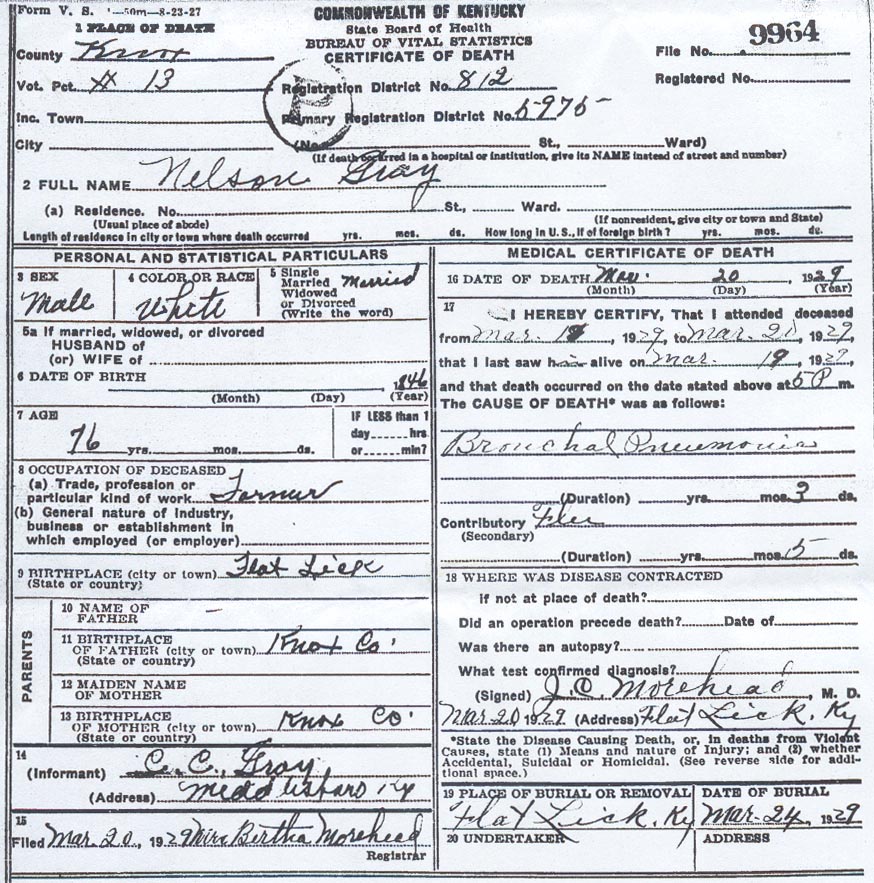 Form V. S. 1-50m-8-23-27
COMMONWEALTH OF KENTUCKY
State Board of Health
BUREAU OF VITAL STATISTICS
CERTIFICATE OF DEATH
1 PLACE OF DEATH
County Knox
File No. 9964
Vot. Pct. # 13
Registration District No. 812
Registered No.
Inc. Town
Primary Registration District No. 5975
City (No. St., Ward)
(If death occurred in a hospital or institution, give its NAME instead of street and number)
2 FULL NAME Nelson Gray
(a) Residence. No. St., Ward.
(Usual place of abode) (If nonresident, give city or town and State)
Length of residence in city or town where death occurred yrs. mos. ds. How long in U. S., if of foreign birth? yrs. mos. ds.
PERSONAL AND STATISTICAL PARTICULARS
3 SEX
Male
4 COLOR OR RACE
White
5 Single
Married
Widowed
or Divorced
(Write the word)
Married
5a If married, widowed, or divorced
HUSBAND of
(or) WIFE of
6 DATE OF BIRTH
1846
(Month) (Day) (Year)
7 AGE
76 yrs. mos. ds.
IF LESS than 1
day hrs
or min?
8 OCCUPATION OF DECEASED
(a) Trade, profession or
particular kind of work Farmer
(b) General nature of industry,
business or establishment in
which employed (or employer)
9 BIRTHPLACE (city or town) Flat Lick
(State or country)
PARENTS
10 NAME OF
FATHER
11 BIRTHPLACE
OF FATHER (city or town) Knox Co.
(State or country)
12 MAIDEN NAME
OF MOTHER
13 BIRTHPLACE
OF MOTHER (city or town) Knox Co.
(State or country)
14
(Informant) C. C. Gray
(Address) Middlesboro Ky
15
Filed Mar. 20, 1929 Mrs Bertha Morehead
Registrar
MEDICAL CERTIFICATE OF DEATH
16 DATE OF DEATH Mar. 20 1929
(Month) (Day) (Year)
17
I HEREBY CERTIFY, That I attended deceased
from Mar. 18, 1929, to Mar. 20, 1929
that I last saw him alive on Mar. 19, 1929
and that death occurred on the date stated above at 5 P m.
The CAUSE OF DEATH* was as follows:
Bronchal Pneumonia
(Duration) yrs. mos. 3 ds.
Contributory Flu
(Secondary)
(Duration) yrs. mos. 5 ds.
18 WHERE WAS DISEASE CONTRACTED
if not at place of death?
Did an operation precede death? Date of
Was there an autopsy?
What test confirmed diagnosis?
(Signed) J. O. Morehead, M. D.
Mar 20 1929 (Address) Flat Lick, Ky
*State the Disease Causing Death, or, in deaths from Violent
Causes, state (1) Means and nature of Injury; and (2) whether
Accidental, Suicidal or Homicidal. (See reverse side for addi-
tional space.)
19 PLACE OF BURIAL OR REMOVAL
Flat Lick, Ky
DATE OF BURIAL
Mar-24, 1929
20 UNDERTAKER
ADDRESS